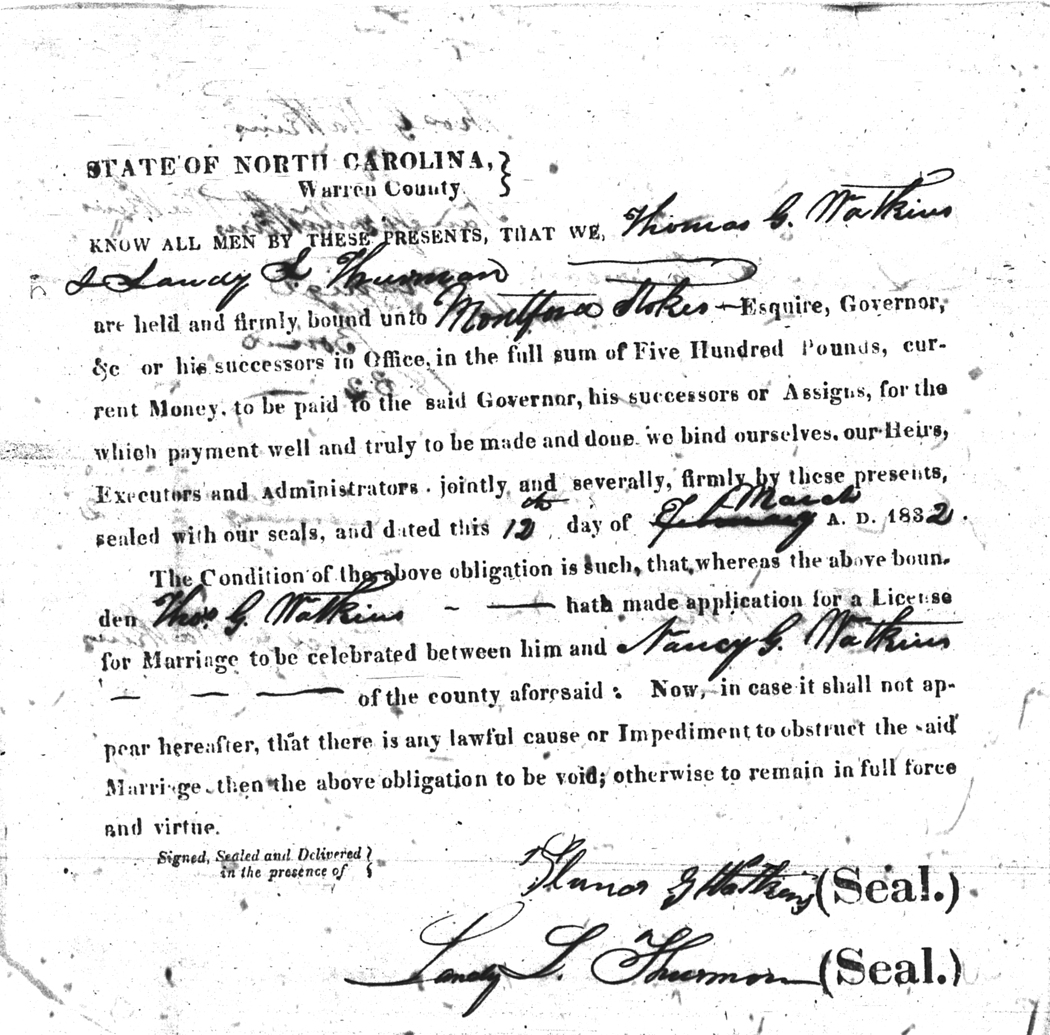 STATE OF NORTH CAROLINA,
Warren County.
KNOW ALL MEN BY THESE PRESENTS, THAT WE, Thomas G. Watkins
& Landy L. Thurman
are held and firmly bound unto Montford Stokes Esquire, Governor,
&c or his successors in Office, in the full sum of Five Hundred Pounds, cur-
rent Money, to be paid to the said Governor, his successors or Assigns, for the
which payment well and truly to be made and done. we bind ourselves, our Heirs,
Executors and Administrators . jointly and severally, firmly by these presents,
sealed with our seals, and dated this 12th day of February March A. D. 1832.
The Condition of the above obligation is such, that whereas the above boun-
den Thos. G. Watkins - — hath made application for a License
for Marriage to be celebrated between him and Nancy G. Watkins
— — — of the county aforesaid : Now, in case it shall not ap-
pear hereafter, that there is any lawful cause or Impediment to obstruct the said
Marriage, then the above obligation to be void; otherwise to remain in full force
and virtue.
Signed, Sealed and Delivered
in the presence of
G Watkins (Seal.)
Landy L. Thurman (Seal.)